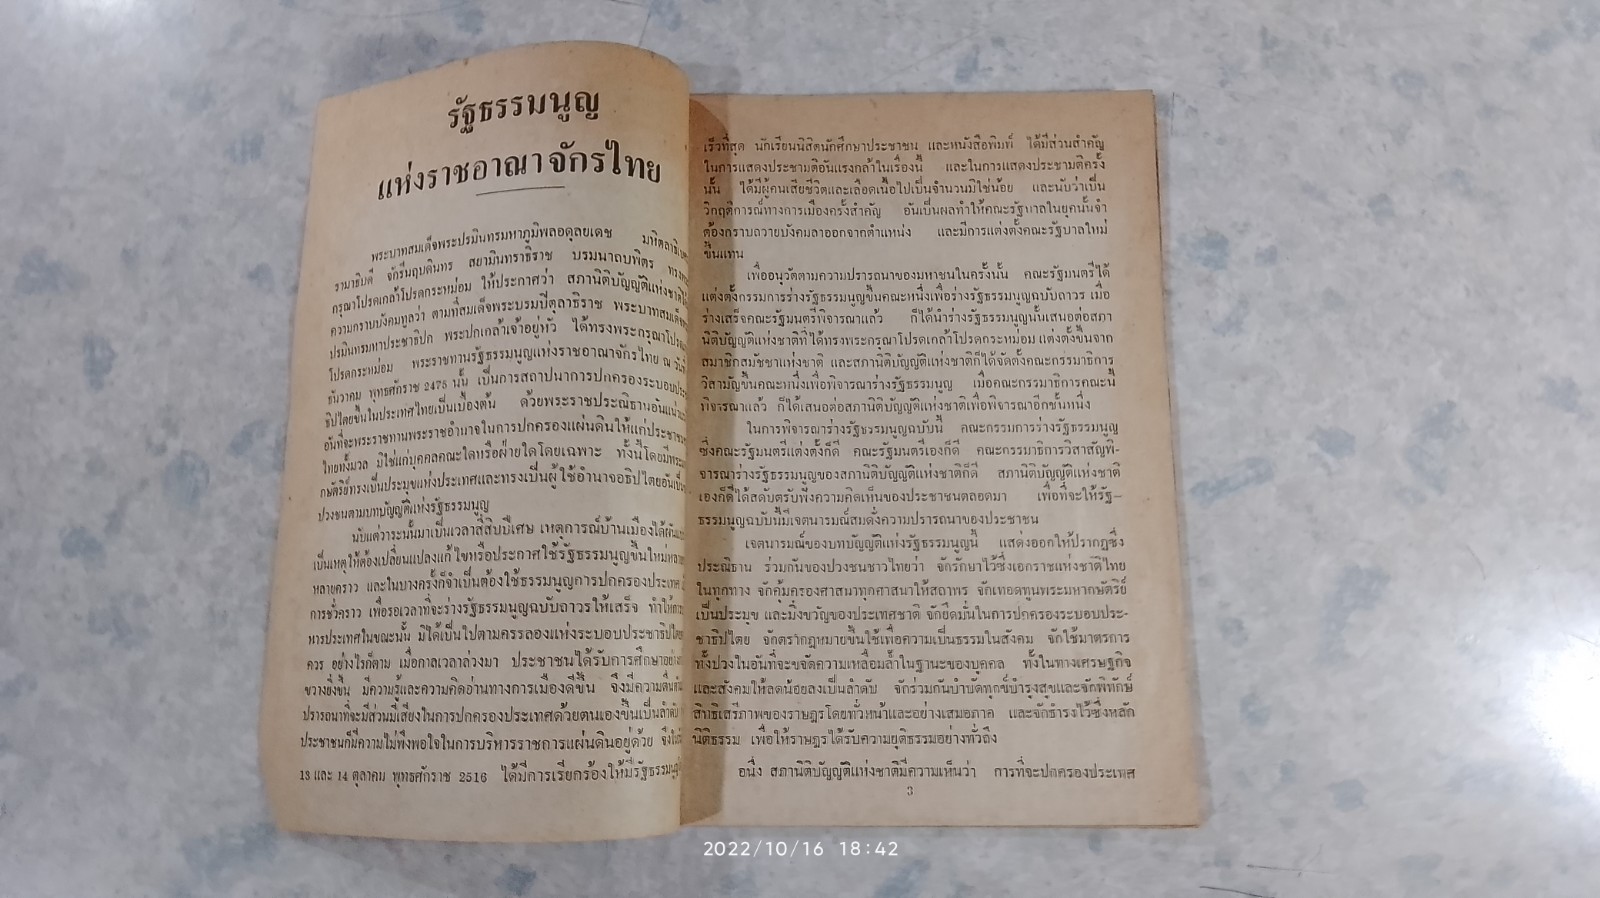 รัฐธรรมนูญ
แห่งราชอาณาจักรไทย
พระบาทสมเด็จพระปรมินทรมหาภูมิพลอดุลยเดช มหิตลาธิเบศ
รามาธิบดี จักรีนฤบดินทร สยามินทราธิราช บรมนาถบพิตร ทรงพระ
กรุณาโปรดเกล้าโปรดกระหม่อม ให้ประกาศว่า สภานิติบัญญัติแห่งชาติได้
ความกราบบังคมทูลว่า ตามที่สมเด็จพระบรมปิตุลาธิราช พระบาทสมเด็จพระ
ปรมินทรมหาประชาธิปก พระปกเกล้าเจ้าอยู่หัว ได้ทรงพระกรุณาโปรดเกล้า
โปรดกระหม่อม พระราชทานรัฐธรรมนูญแห่งราชอาณาจักรไทย ณ วันที่
ธันวาคม พุทธศักราช 2475 นั้น เป็นการสถาปนาการปกครองระบอบประ
ธิปไตยขึ้นในประเทศไทยเป็นเบื้องต้น ด้วยพระราชประณิธานอันแน่วแน่
อันที่จะพระราชทานพระราชอำนาจในการปกครองแผ่นดินให้แก่ประชาชน
ไทยทั้งมวล มิใช่แก่บุคคลคณะใดหรือฝ่ายใดโดยเฉพาะ ทั้งนี้โดยมีพระมหา
กษัตริย์ทรงเป็นประมุขแห่งประเทศและทรงเป็นผู้ใช้อำนาจอธิปไตยอันเป็น
ปวงชนตามบทบัญญัติแห่งรัฐธรรมนูญ
นับแต่วาระนั้นมาเป็นเวลาสี่สิบปีเศษ เหตุการณ์บ้านเมืองได้ผันแปร
เป็นเหตุให้ต้องเปลี่ยนแปลงแก้ไขหรือประกาศใช้รัฐธรรมนูญขึ้นใหม่หลาย
หลายคราว และในบางครั้งก็จำเป็นต้องใช้ธรรมนูญการปกครองประเทศ
การชั่วคราว เพื่อรอเวลาที่จะร่างรัฐธรรมนูญฉบับถาวรให้เสร็จ ทำให้การ
หารประเทศในขณะนั้น มิได้เป็นไปตามครรลองแห่งระบอบประชาธิปไตย
ควร อย่างไรก็ตาม เมื่อกาลเวลาล่วงมา ประชาชนได้รับการศึกษาอย่าง
ขวางยิ่งขึ้น มีความรู้และความคิดอ่านทางการเมืองดีขึ้น จึงมีความตื่นตัว
ปรารถนาที่จะมีส่วนมีเสียงในการปกครองประเทศด้วยตนเองขึ้นเป็นลำดับ
ประชาชนก็มีความไม่พึงพอใจในการบริหารราชการแผ่นดินอยู่ด้วย จึง
13 และ 14 ตุลาคม พุทธศักราช 2516 ได้มีการเรียกร้องให้มีรัฐธรรมนูญ
เร็วที่สุด นักเรียนนิสิตนักศึกษาประชาชน และหนังสือพิมพ์ ได้มีส่วนสำคัญ
ในการแสดงประชามติอันแรงกล้าในเรื่องนี้ และในการแสดงประชามติครั้ง
นั้น ได้มีผู้คนเสียชีวิตและเลือดเนื้อไปเป็นจำนวนมิใช่น้อย และนับว่าเป็น
วิกฤติการณ์ทางการเมืองครั้งสำคัญ อันเป็นผลทำให้คณะรัฐบาลในยุคนั้นจำ
ต้องกราบถวายบังคมลาออกจากตำแหน่ง และมีการแต่งตั้งคณะรัฐบาลใหม่
ขึ้นแทน
เพื่ออนุวัตตามความปรารถนาของมหาชนในครั้งนั้น คณะรัฐมนตรีได้
แต่งตั้งกรรมการร่างรัฐธรรมนูญขึ้นคณะหนึ่งเพื่อร่างรัฐธรรมนูญฉบับถาวร เมื่อ
ร่างเสร็จคณะรัฐมนตรีพิจารณาแล้ว ก็ได้นำร่างรัฐธรรมนูญนั้นเสนอต่อสภา
นิติบัญญัติแห่งชาติที่ได้ทรงพระกรุณาโปรดเกล้าโปรดกระหม่อม แต่งตั้งขึ้นจาก
สมาชิกสมัชชาแห่งชาติ และสภานิติบัญญัติแห่งชาติก็ได้จัดตั้งคณะกรรมาธิการ
วิสามัญขึ้นคณะหนึ่งเพื่อพิจารณาร่างรัฐธรรมนูญ เมื่อคณะกรรมาธิการคณะนี้
พิจารณาแล้ว ก็ได้เสนอต่อสภานิติบัญญัติแห่งชาติเพื่อพิจารณาอีกชั้นหนึ่ง
ในการพิจารณาร่างรัฐธรรมนูญฉบับนี้ คณะกรรมการร่างรัฐธรรมนูญ
ซึ่งคณะรัฐมนตรีแต่งตั้งก็ดี คณะรัฐมนตรีเองก็ดี คณะกรรมาธิการวิสาสัญพิ-
จารณาร่างรัฐธรรมนูญของสภานิติบัญญัติแห่งชาติก็ดี สภานิติบัญญัติแห่งชาติ
เองก็ดีได้สดับตรับฟังความคิดเห็นของประชาชนตลอดมา เพื่อที่จะให้รัฐ-
ธรรมนูญฉบับนี้มีเจตนารมณ์สมดั่งความปรารถนาของประชาชน
เจตนารมณ์ของบทบัญญัติแห่งรัฐธรรมนูญนี้ แสดงออกให้ปรากฏซึ่ง
ประณิธาน ร่วมกันของปวงชนชาวไทยว่า จักรักษาไว้ซึ่งเอกราชแห่งชาติไทย
ในทุกทาง จักคุ้มครองศาสนาทุกศาสนาให้สถาพร จักเทอดทูนพระมหากษัตริย์
เป็นประมุข และมิ่งขวัญของประเทศชาติ จักยึดมั่นในการปกครองระบอบประ-
ชาธิปไตย จักตรากฎหมายขึ้นใช้เพื่อความเป็นธรรมในสังคม จักใช้มาตรการ
ทั้งปวงในอันที่จะขจัดความเหลื่อมล้ำในฐานะของบุคคล ทั้งในทางเศรษฐกิจ
และสังคมให้ลดน้อยลงเป็นลำดับ จักร่วมกันบำบัดทุกข์บำรุงสุขและจักพิทักษ์
สิทธิเสรีภาพของราษฎรโดยทั่วหน้าและอย่างเสมอภาค และจักธำรงไว้ซึ่งหลัก
นิติธรรม เพื่อให้ราษฎรได้รับความยุติธรรมอย่างทั่วถึง
อนึ่ง สภานิติบัญญัติแห่งชาติมีความเห็นว่า การที่จะปกครองประเทศ
3
2022/10/16 18:42